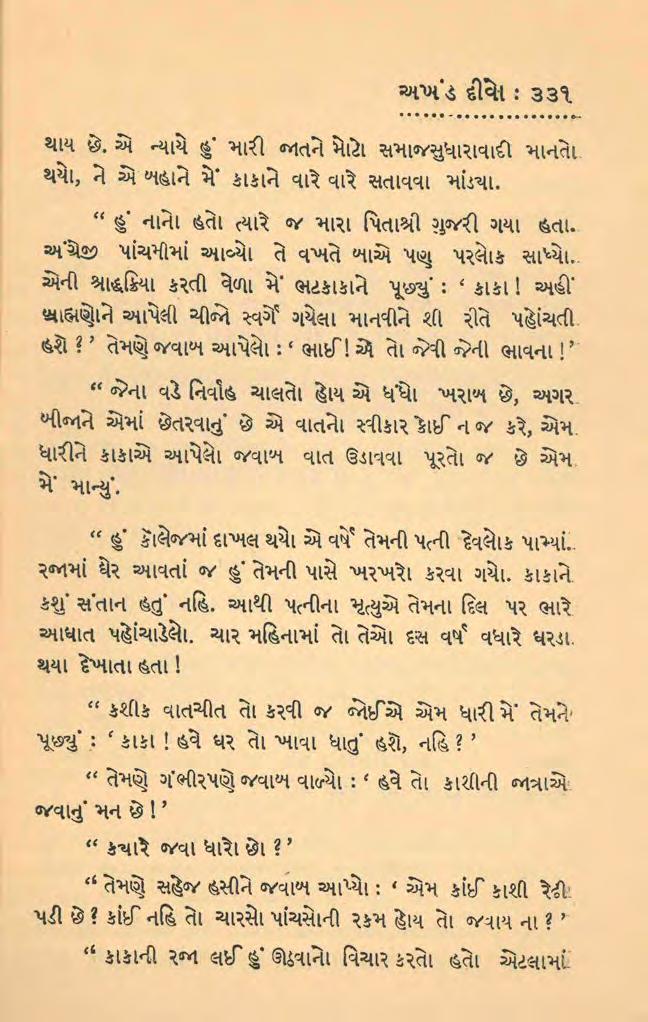 અખંડ દીવો : ૩૩૧
થાય છે. એ ન્યાયે હું મારી જાતને મોટો સમાજસુધારાવાદી માનતો
થયો, ને એ બહાને મેં કાકાને વારે વારે સતાવવા માંડ્યા.
“ હું નાનો હતો ત્યારે જ મારા પિતાશ્રી ગુજરી ગયા હતા.
અંગ્રેજી પાંચમીમાં આવ્યો તે વખતે બાએ પણ પરલોક સાધ્યો.
એની શ્રાદ્ધક્રિયા કરતી વેળા મેં ભટકાકાને પૂછ્યું : ‘ કાકા ! અહીં
બ્રાહ્મણોને આપેલી ચીજો સ્વર્ગે ગયેલા માનવીને શી રીતે પહોંચતી
હશે ? ’ તેમણે જવાબ આપેલો : ‘ ભાઈ ! એ તો જેવી જેની ભાવના ! ’
“ જેના વડે નિર્વાહ ચાલતો હોય એ ધંધો ખરાબ છે, અગર
બીજાને એમાં છેતરવાનું છે એ વાતનો સ્વીકાર કોઈ ન જ કરે, એમ
ધારીને કાકાએ આપેલો જવાબ વાત ઉડાવવા પૂરતો જ છે એમ
મેં માન્યું.
“ હું કૉલેજમાં દાખલ થયો એ વર્ષે તેમની પત્ની દેવલોક પામ્યાં.
રજામાં ઘેર આવતાં જ હું તેમની પાસે ખરખરો કરવા ગયો. કાકાને
કશું સંતાન હતું નહિ. આથી પત્નીના મૃત્યુએ તેમના દિલ પર ભારે
આઘાત પહોંચાડેલો. ચાર મહિનામાં તો તેઓ દસ વર્ષ વધારે ઘરડા
થયા દેખાતા હતા !
“ કશીક વાતચીત તો કરવી જ જોઈએ એમ ધારી મેં તેમને
પૂછ્યું : ‘ કાકા ! હવે ઘર તો ખાવા ધાતું હશે, નહિ ? ’
“ તેમણે ગંભીરપણે જવાબ વાળ્યો : ‘ હવે તો કાશીની જાત્રાએ
જવાનું મન છે ! ’
“ ક્યારે જવા ધારો છો ? ’
“ તેમણે સહેજ હસીને જવાબ આપ્યો : ‘ એમ કાંઈ કાશી રેઢી
પડી છે ? કાંઈ નહિ તો ચારસો પાંચસોની રકમ હોય તો જવાય ના ? ’
“ કાકાની રજા લઈ હું ઊઠવાનો વિચાર કરતો હતો એટલામાં